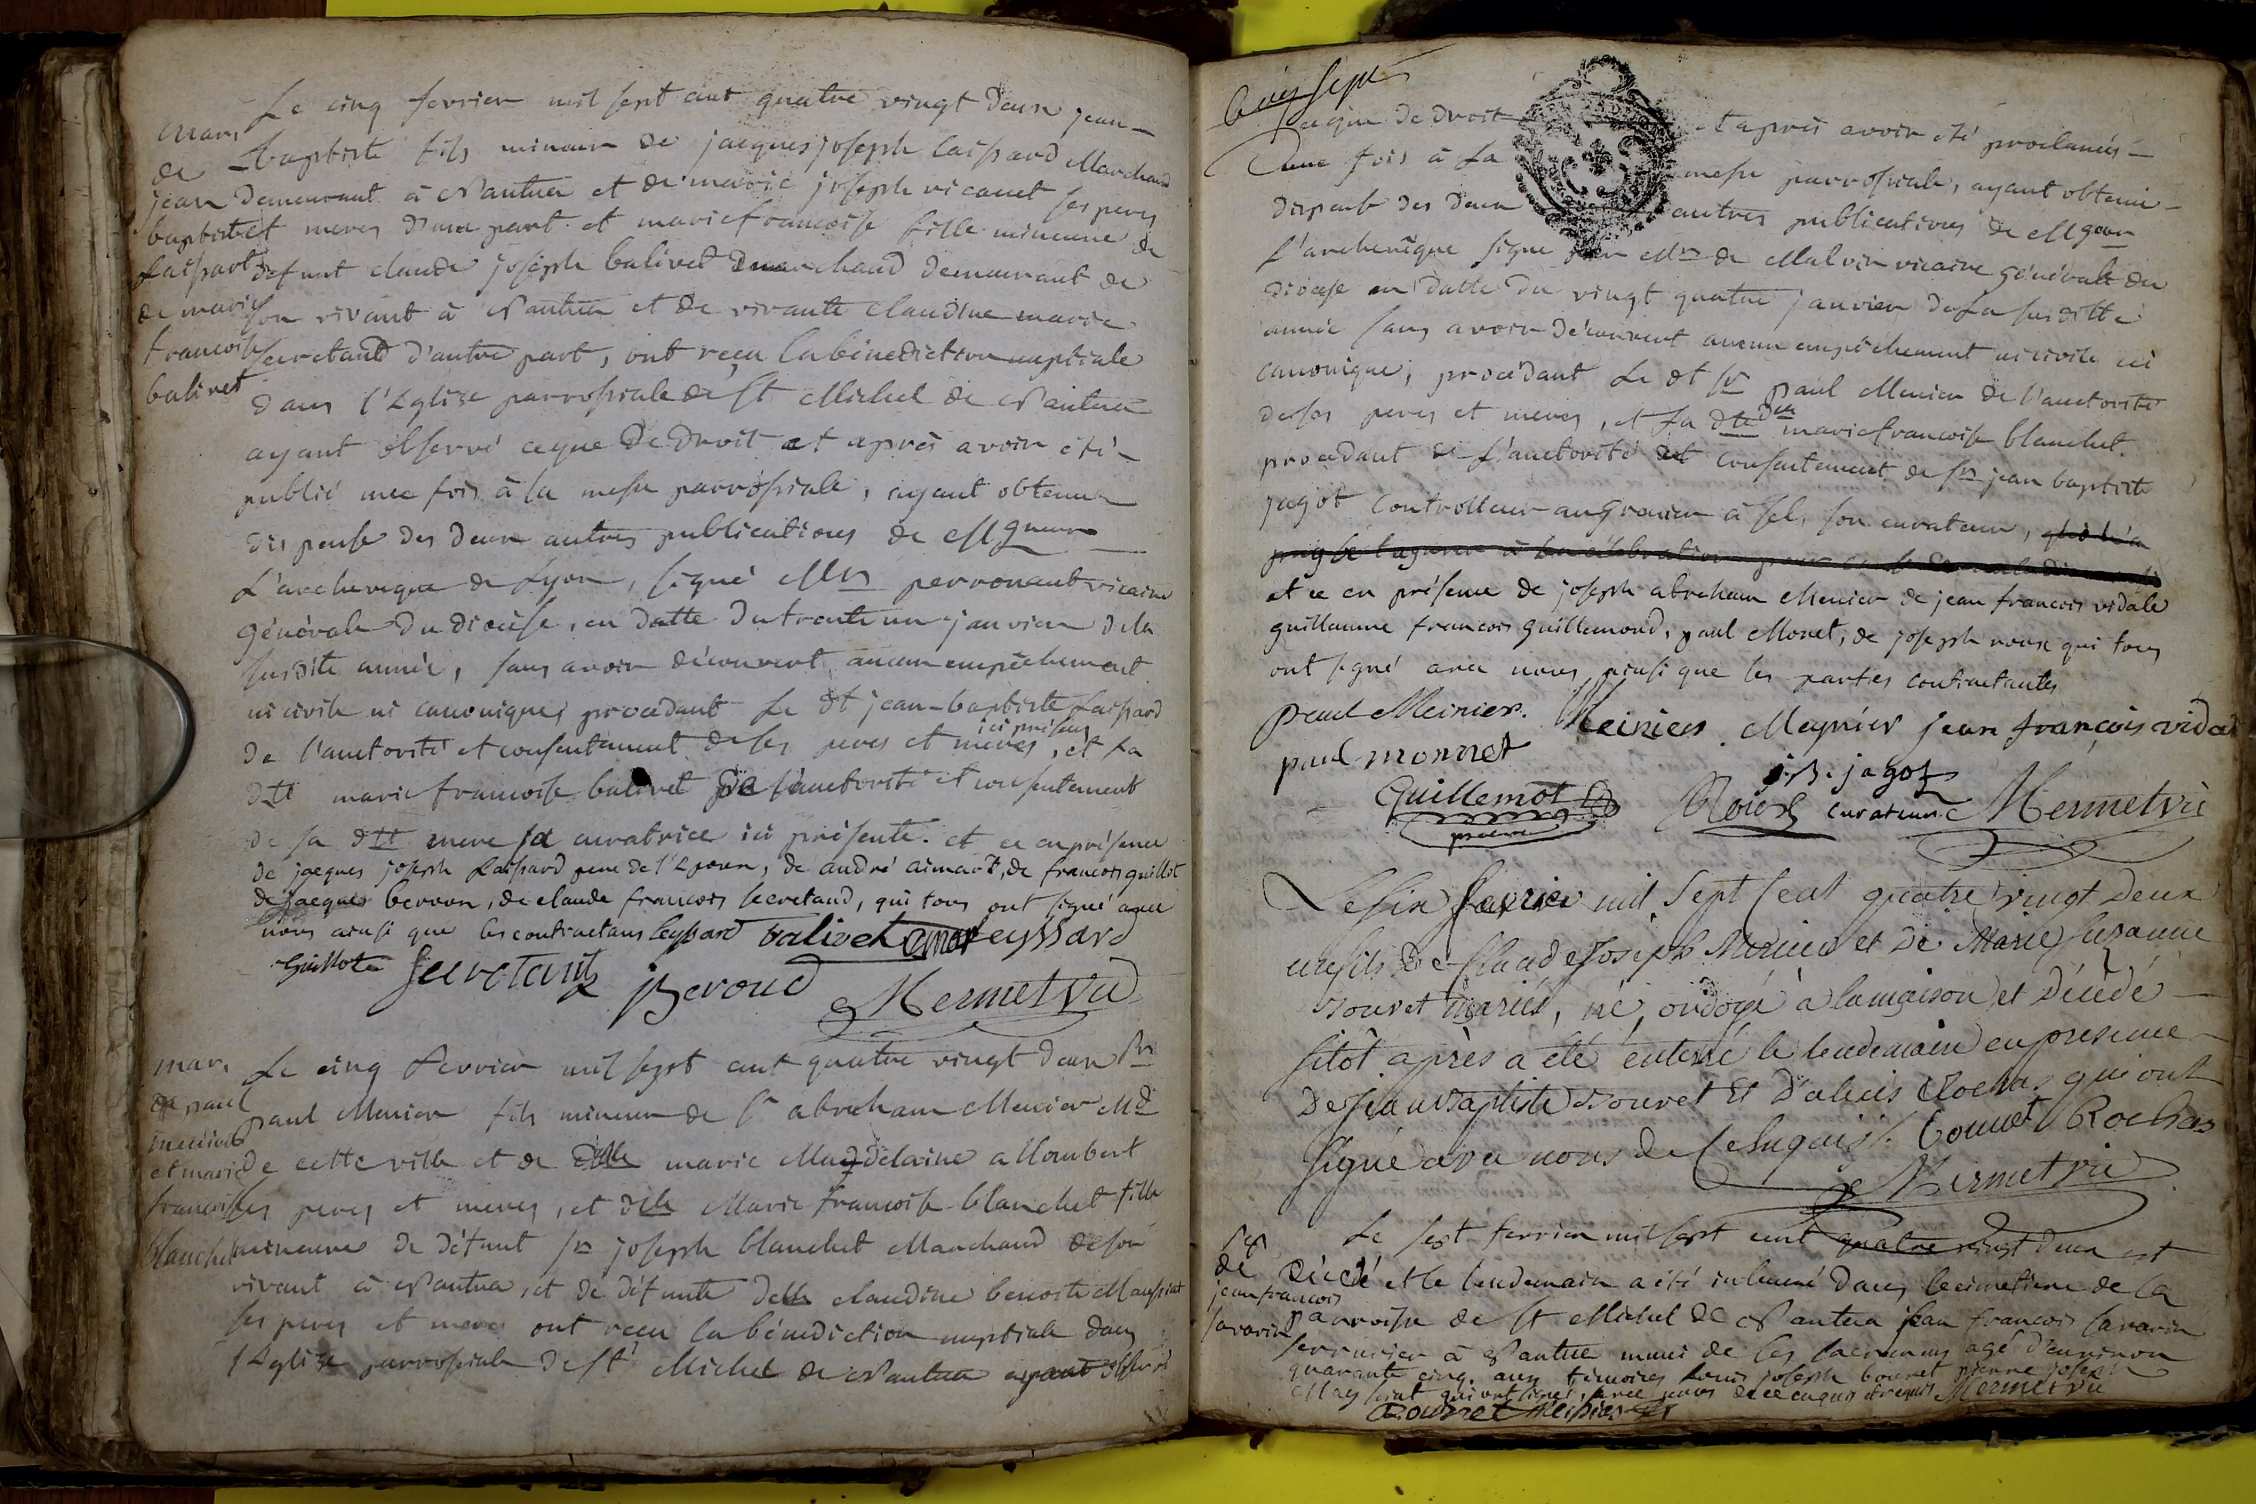 Le cinq fevrier mil sept cent quatre vingt deux jean-
baptiste fils mineur de jacques joseph laissard Marchand
demeurant à Nantua et de marie joseph vicanet ses peres
et meres d'une part et marie francoise fille mineure de
defunt claude joseph balivet marchand demeurant de
son vivant à Nantua et de vivante claudine marie
secretand d'autre part, ont reçu la bénédiction nuptiale
dans l'Eglize parrossiale de St Michel de Nantua
ayant observé ce que de droit et après avoir été
publié une fois à la messe parrossiale, ayant obtenu
dispense des deux autres publications de Mgneur
L'archeveque de Lyon, signé Mr perronaut vicaire
générale du diocèse, en datte du trente un janvier de la
susdite année, sans avoir découvert aucun empêchement
ni civile ni canonique, procedant Le dt jean-baptiste Laissard
de l'auctorité et consentement de ses peres et meres ici présens, et La
dtt marie francoise balivet de l'auctorité et consentement
de sa dtt mere sa curatrice ici présente. et ce en présence
de jacques joseph Laissard pere de l'Epoux, de andré aimart, de francois guillot
de jacques berrou, de claude francois secretand, qui tous ont signé avec
nous ainsi que les contractans leyssard balivet emar leyssard
Guillot Secretant j Beroud Mermet vic
mar.
de
jean
baptiste
Laissart
de marie
francoise
balivet
Le cinq fevrier mil sept cent quatre vingt deux Sr
paul Menier fils mineur de Sr abraham Menier Md
de cette ville et de Delle marie Magdelaine allombert
ses peres et meres, et delle Marie francoise blanchet fille
mineure de défunt Sr joseph blanchet Marchand de son
vivant à Nantua, et de défunte delle claudine benoite Maissiat
ses peres et meres ont reçu la bénédiction nuptiale dans
l'Eglize parrossiale de St Michel de Nantua ayant observé
mar.
de paul
menier
et marie
francoise
blanchet
Ce que de droit et après avoir été proclamés
une fois à La messe parrossiale, ayant obtenu
dispense des deux autres publications de Mgneur
L'archevêque signé par Mr de Malvin vicaire générale du
diocèse en datte du vingt quatre janvier de La susditte
année sans avoir découvert aucun empêchement ni civile ni
canonique, procédant Le dt Sr paul Menier de l'auctorité
de ses peres et meres, et La dtt Dlle marie francoise blanchet
procédant de L'auctorité et consentement de Sr jean baptiste
jagot Controlleur au Grenier à sel, son curateur,
et ce en présence de joseph abraham Menier de jean francois vidale
guillaume francois Guillemond, paul Monet, de joseph roux qui tous
ont signé avec nous ainsi que les parties contractantes
paul Meinier. Meiniers Meynier jean françois vidal
paul monnet
Guillemot j.B. jagot
procureur Roux curateur Mermet vic
Le six fevrier mil sept cent quatre vingt deux
un fils de Claude Joseph Menier et de Marie Susanne
Bouvet mariés, né, ondoyé à la maison et décédé
sitôt après a été enterré le lendemain en presence
de Jean Baptiste Bouvet et d'alexis Rochas qui ont
signé avec nous de ce enquis. bouvet Rochas
Mermet vic
Le sept fevrier mil sept cent quatre vingt deux est
décédé et le lendemain a été inhumé dans le cimetiere de la
parroisse de St Michel de Nantua jean francois savarin
serrurier à Nantua muni de ses sacremens agé d'environ
quarante cinq ans témoins Louis joseph bouvet pierre joseph
Mayssiat qui ont signé avec nous de ce enquis et requis Mermet vic
Bouvet Meissiat
Sep
de
jean francois
savarin